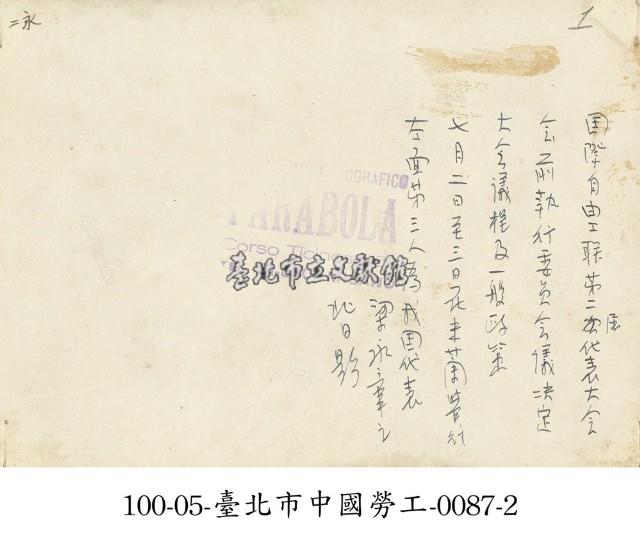 永
1
国際自由工联第二次代表大会
屆
会前執行委员会議决定
大会議程及一般政策
七月二日至三日在米蘭举行
左面第三人為我国代表
梁永章之
背影
OGRAFICO
PARABOLA
Corso
臺北市立文獻館
100-05-臺北市中國勞工-0087-2